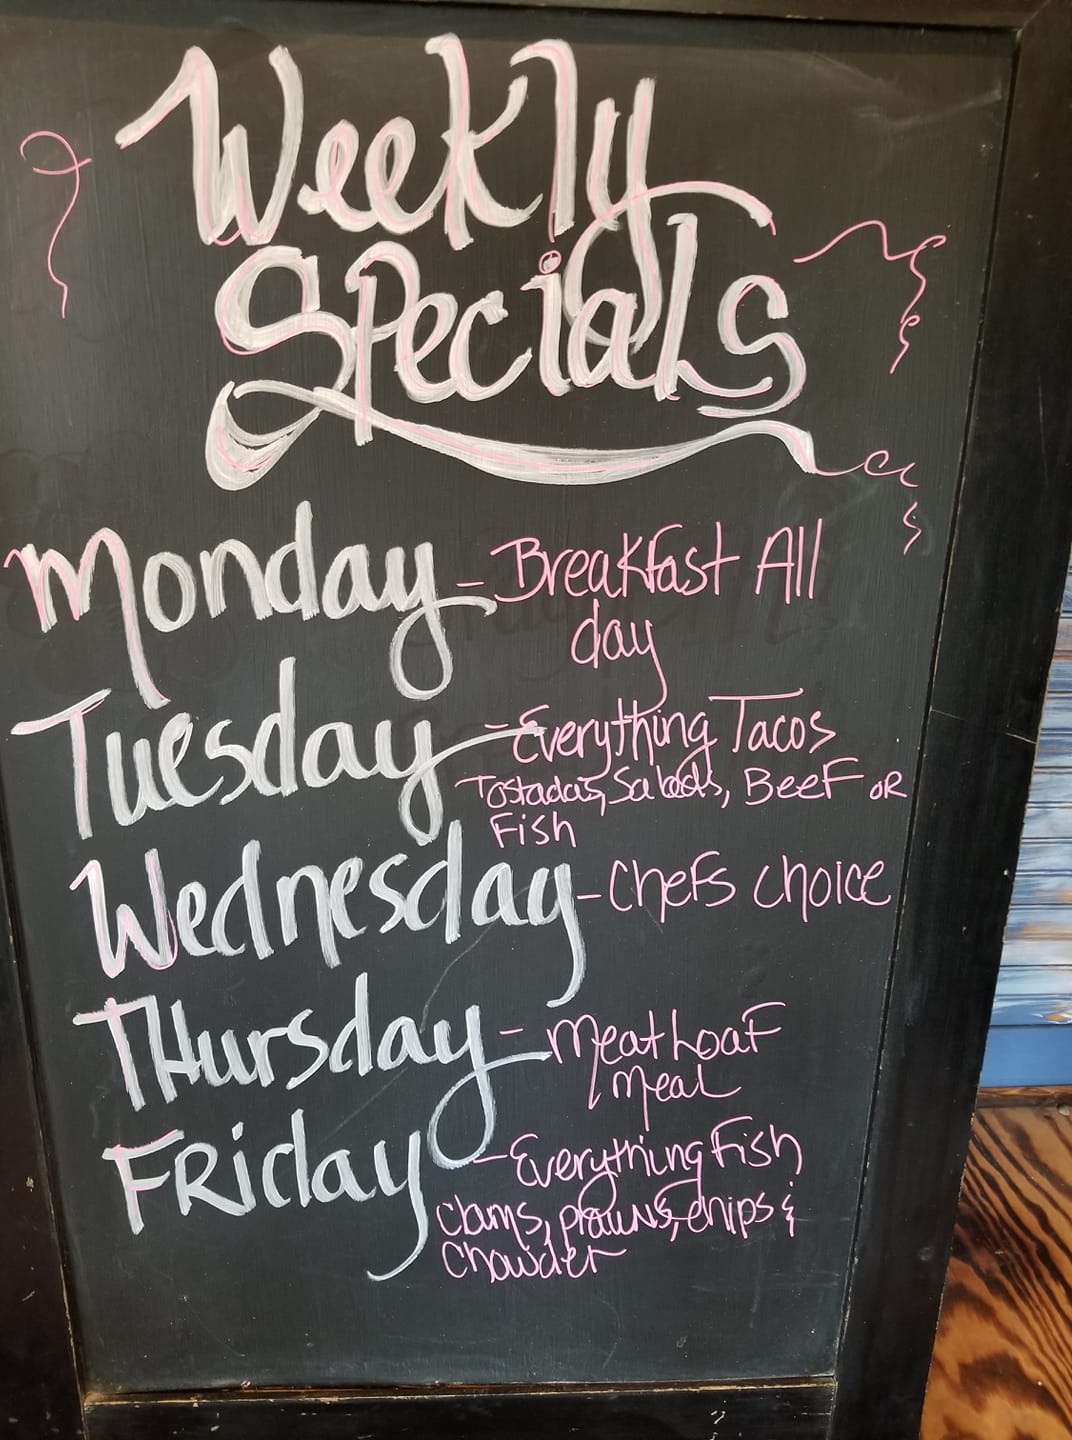 Weekly
Specials
Monday - Breakfast All
day
Tuesday - Everything Tacos
Tostadas, Salads, Beef or
Fish
Wednesday - Chefs choice
THursday - Meat Loaf
Meal
FRiday - Everything Fish
Clams, prawns, chips &
Chowder